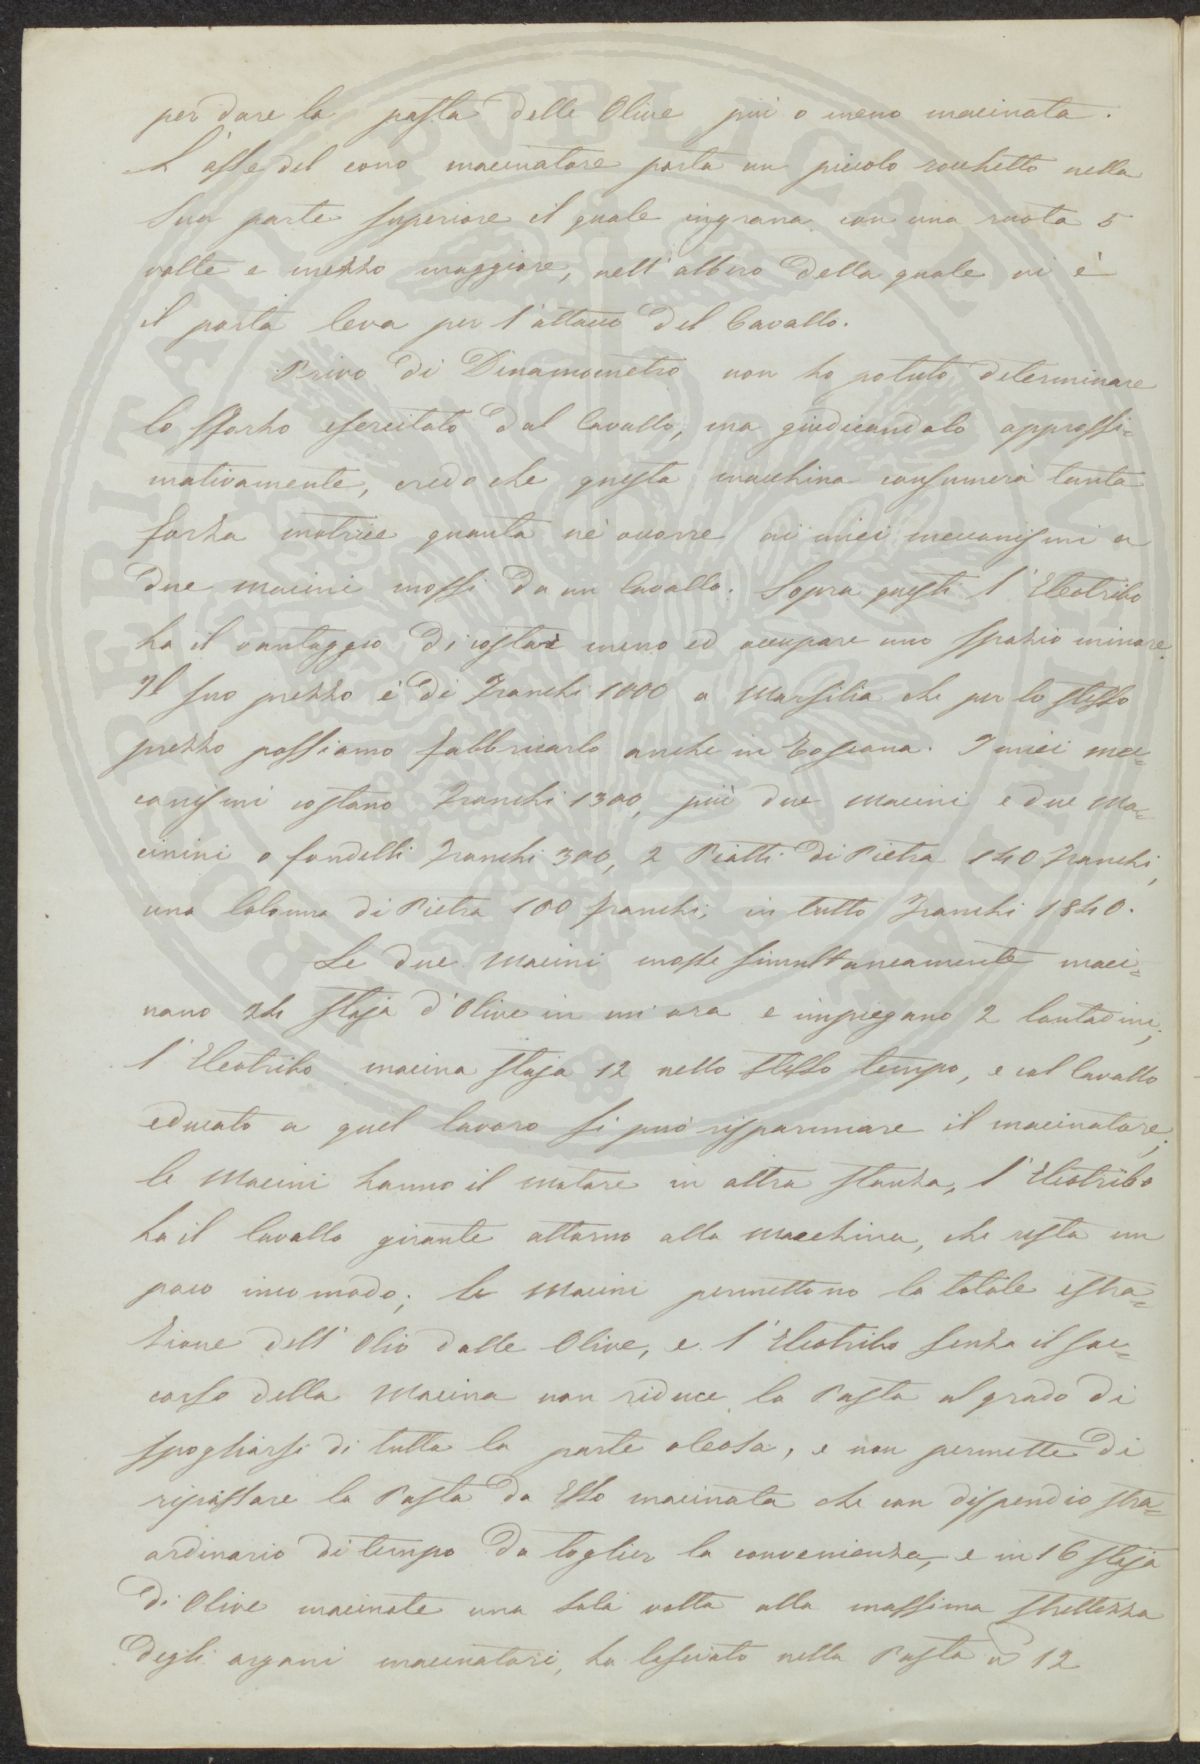 per dare la pasta delle Olive più o meno macinata.
L'asse del cono macinatore porta un piccolo rocchetto nella
Sua parte superiore il quale ingrana con una ruota 5
volte e mezzo maggiore, nell'albero della quale vi è
il porta leva per l'attacco del Cavallo.
Privo di Dinamometro non ho potuto determinare
lo sforzo esercitato dal Cavallo, ma giudicandolo appross=
imativamente, credo che questa macchina consumerà tanta
forza motrice quanta nè occorre ai miei meccanismi a
due macini mossi da un Cavallo. Sopra questi l'Eleotribo
ha il vantaggio di costar meno ed occupare uno spazio minore.
Il suo prezzo è di Franchi 1000 a Marsilia che per lo stesso
prezzo possiamo fabbricarlo anche in Toscana. I miei mec=
canismi costano Franchi 1300, più due macini e due Ma=
cinini o fondelli Franchi 300, 2 Piatti di Pietra 140 Franchi,
una Colonna di Pietra 100 franchi, in tutto Franchi 1840.
Le due Macini mosse simultaneamente maci=
nano 24 staja d'Olive in un ora e impiegano 2 Contadini;
l'Eleotribo macina staja 12 nello stesso tempo, e col Cavallo
educato a quel lavoro si può risparmiare il macinatore;
le Macini hanno il motore in altra stanza, l'Eleotribo
ha il Cavallo girante attorno alla Macchina, che resta un
poco incomodo; le Macini permettono la totale estra=
zione dell'Olio dalle Olive, e l'Eleotribo senza il soc=
corso della Macina non riduce la Pasta al grado di
spogliarsi di tutta la parte oleosa, e non permette di
ripassare la Pasta da Esso macinata che con dispendio stra=
ordinario di tempo da toglier la convenienza, e in 16 staja
di Olive macinate una sola volta alla massima strettezza
degli organi macinatori, ha lasciato nella Pasta 12